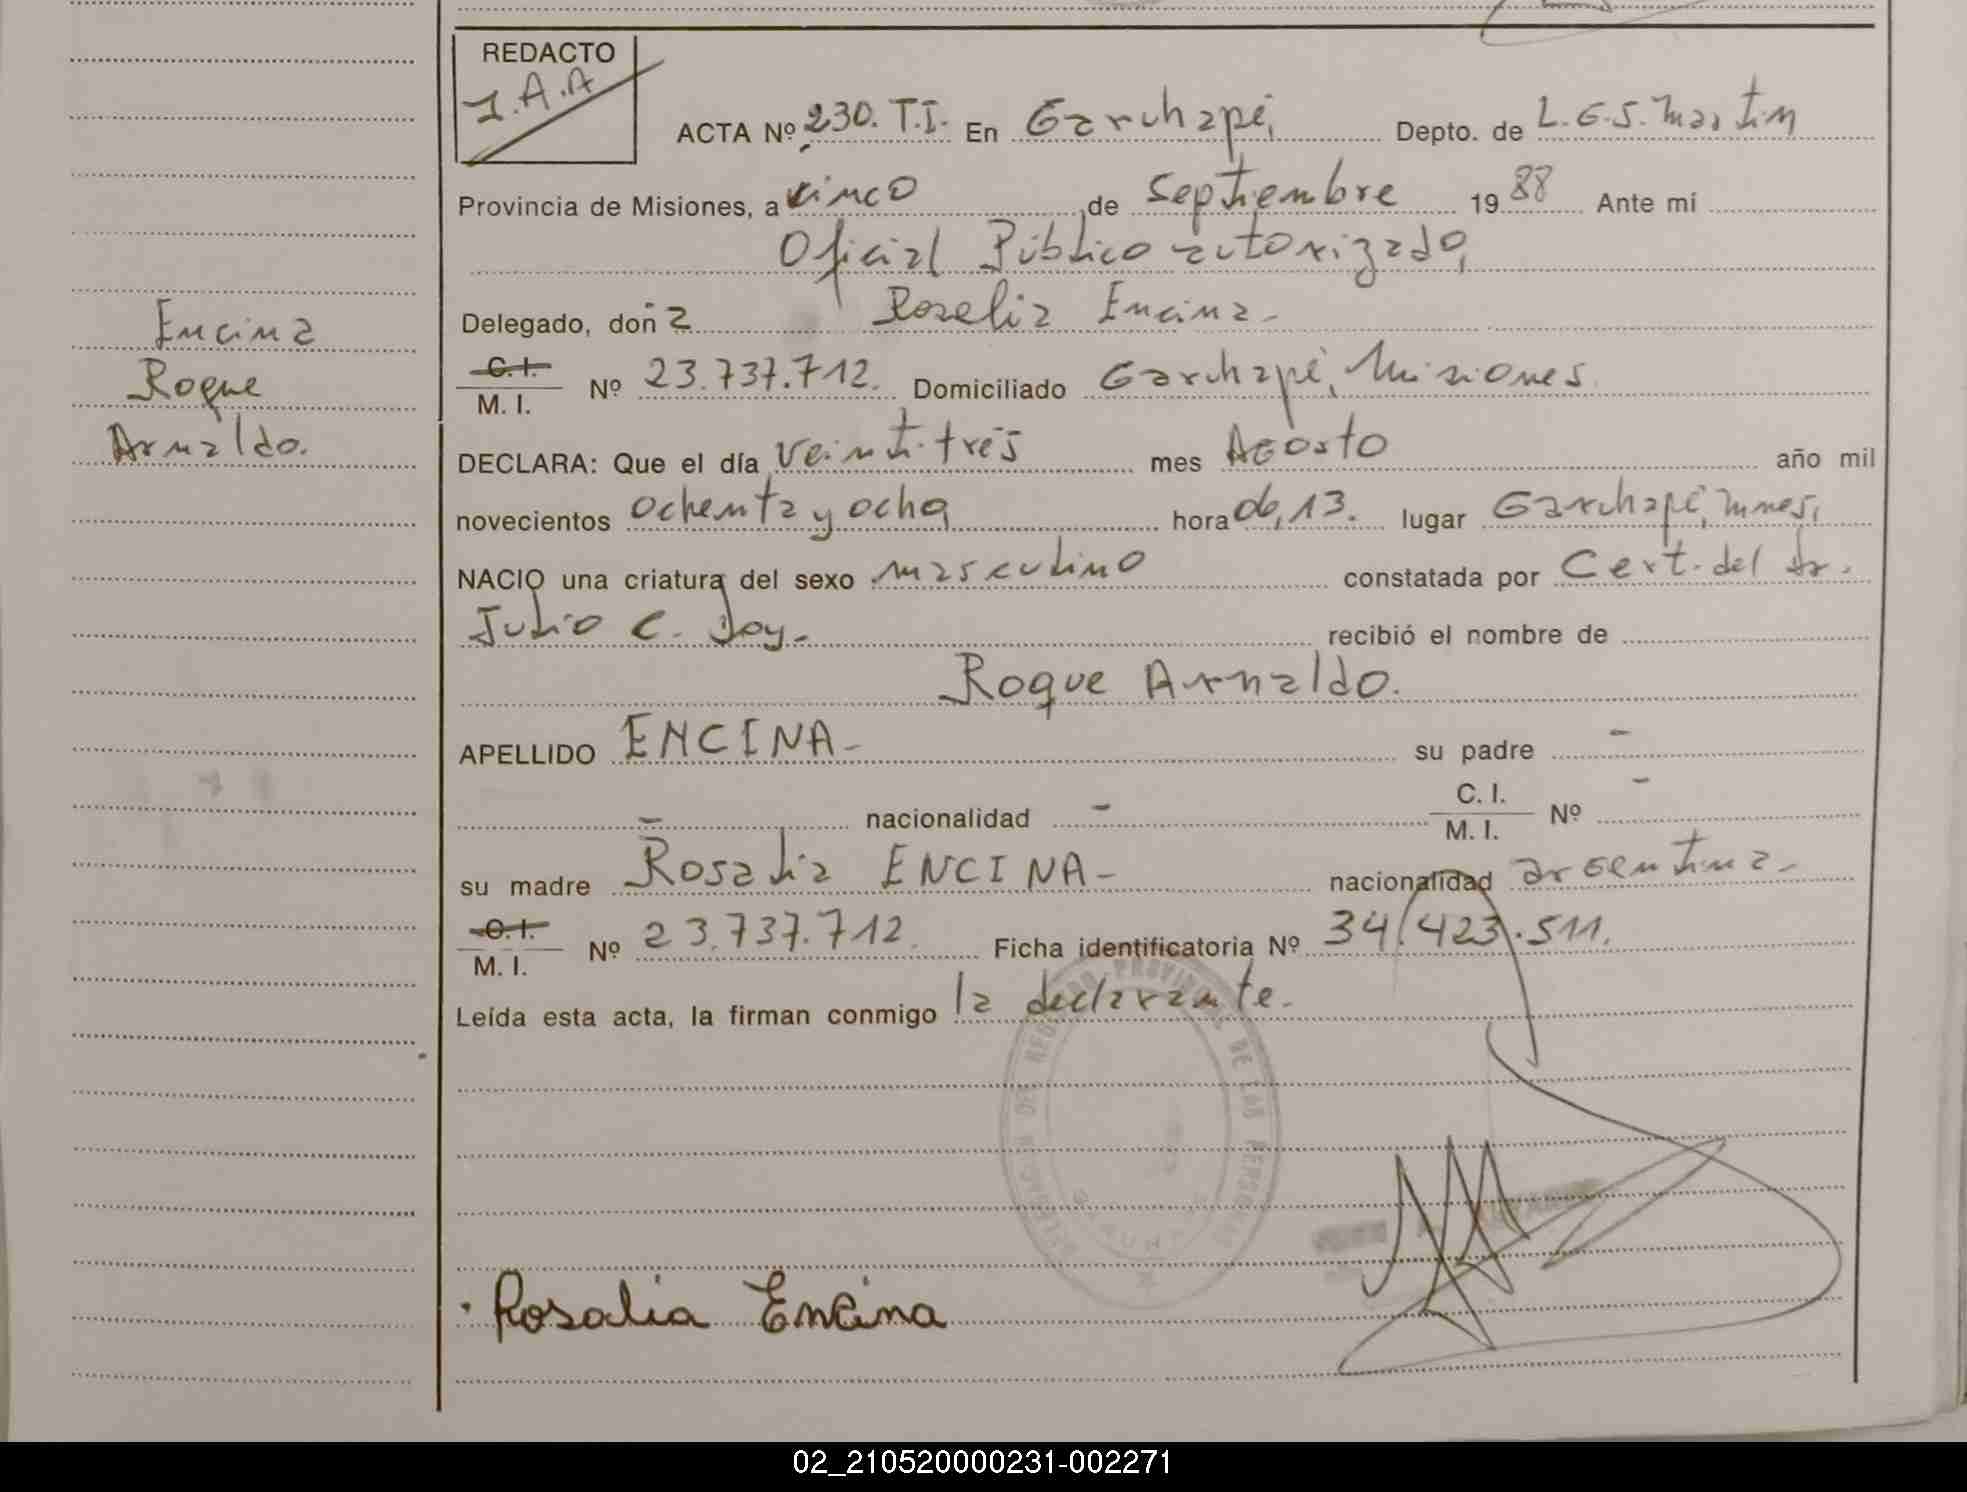 REDACTO
I.A.A
ACTA Nº 230. T.I. En Garuhapé, Depto. de L.G.S. Martin
Provincia de Misiones, a cinco de Septiembre 1988 Ante mí
Oficial Público autorizado,
Delegado, doña Roselia Encina.-
C.I. M. I. Nº 23.737.712. Domiciliado Garuhapé, Misiones.
DECLARA: Que el día veintitrés mes Agosto año mil
novecientos ochenta y ocho, hora 06,13. lugar Garuhapé, Mnes,
NACIO una criatura del sexo masculino constatada por Cert. del Dr.
Julio C. Joy.- recibió el nombre de
Roque Arnaldo.
APELLIDO ENCINA - su padre -
- nacionalidad - C. I. M. I. Nº -
su madre Rosalia ENCINA - nacionalidad argentina.-
C.I. M. I. Nº 23.737.712. Ficha identificatoria Nº 34.423.511.
Leída esta acta, la firman conmigo la declarante.-
Encina
Roque
Arnaldo.
DELEGACION DEL REGISTRO PROVINCIAL DE LAS PERSONAS
Rosalia Encina
02_210520000231-002271